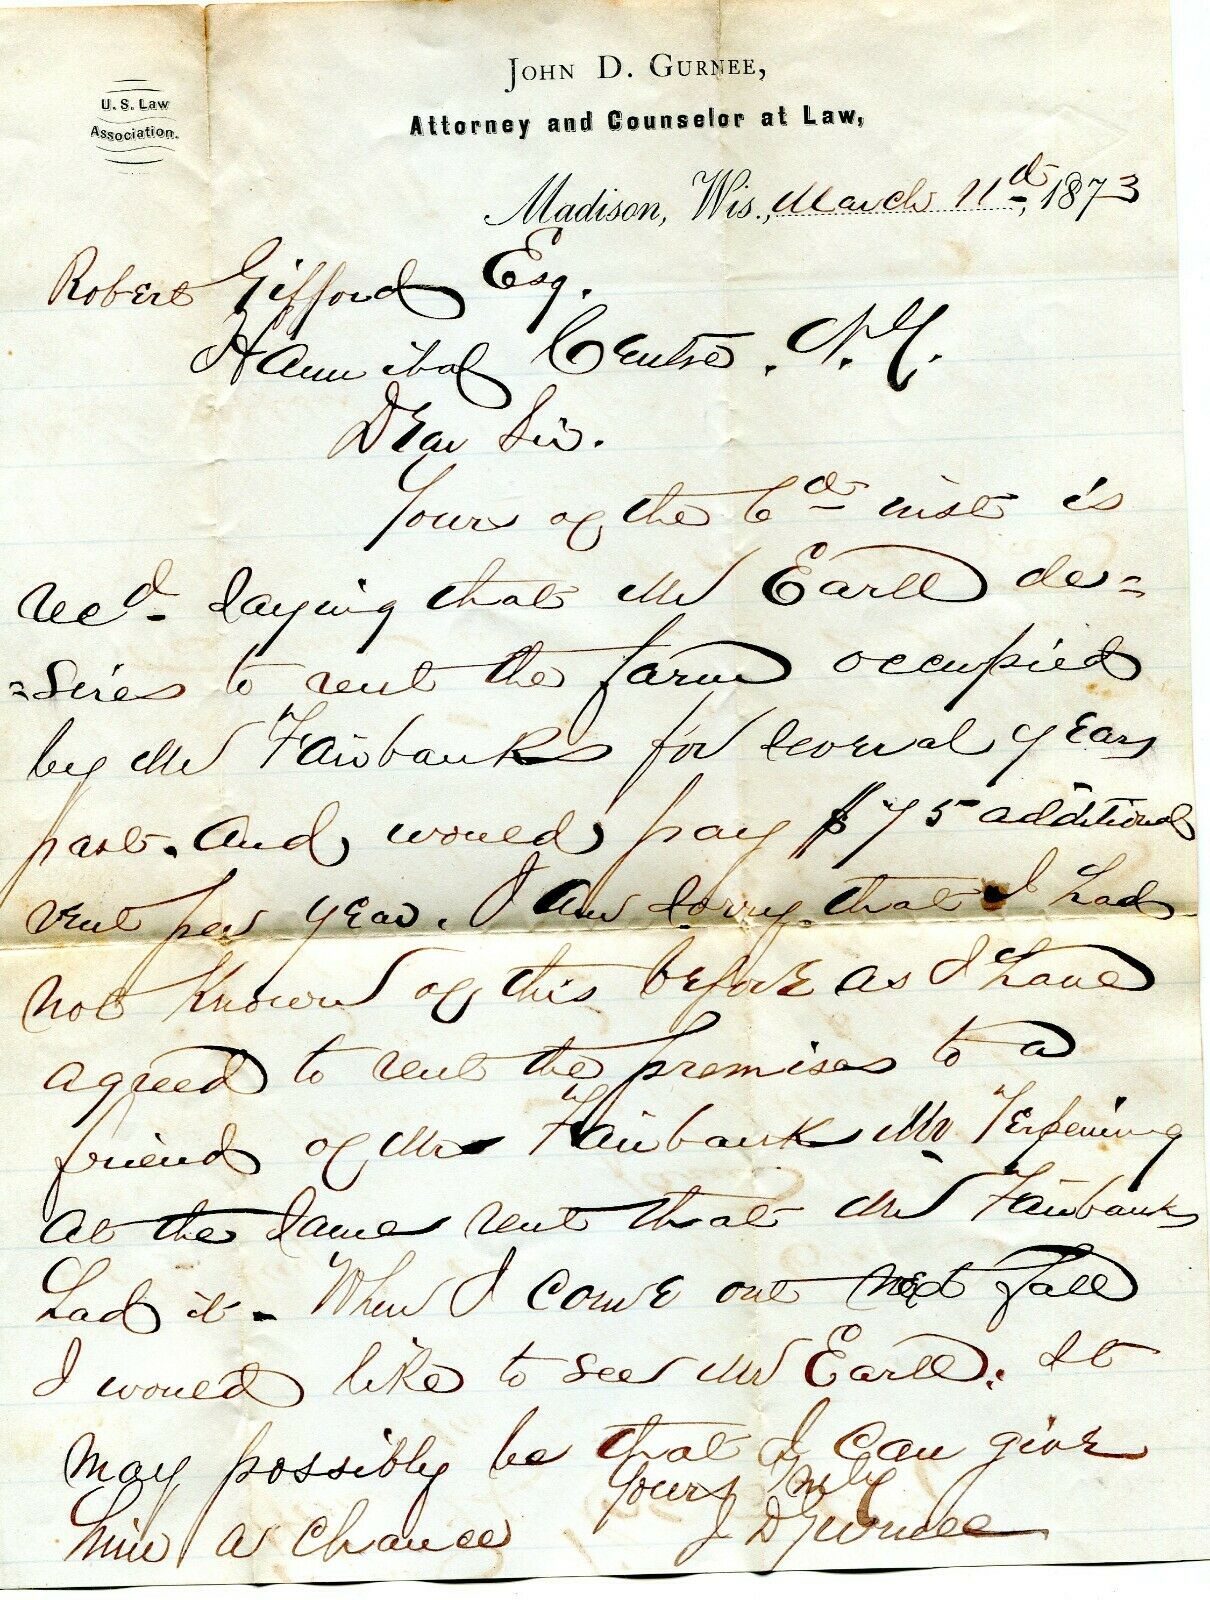 U. S. Law
Association.
John D. Gurnee,
Attorney and Counselor at Law,
Madison, Wis., March 11th, 1873
Robert Gifford Esq.
Hannibal Centre. N. Y.
Dear Sir.
Yours of the 6th inst is
recd. saying that Mr Earll de=
=sires to rent the farm occupied
by Mr Fairbanks for several years
past. And would pay $75 additional
rent per year. I am sorry that I had
not known of this before as I have
agreed to rent the premises to a
friend of Mr Fairbanks Mr. Terpening
at the same rent that Mr Fairbanks
had it. When I come out next fall
I would like to see Mr Earll. It
may possibly be that I can give
him a chance
Yours truly
J D Gurnee